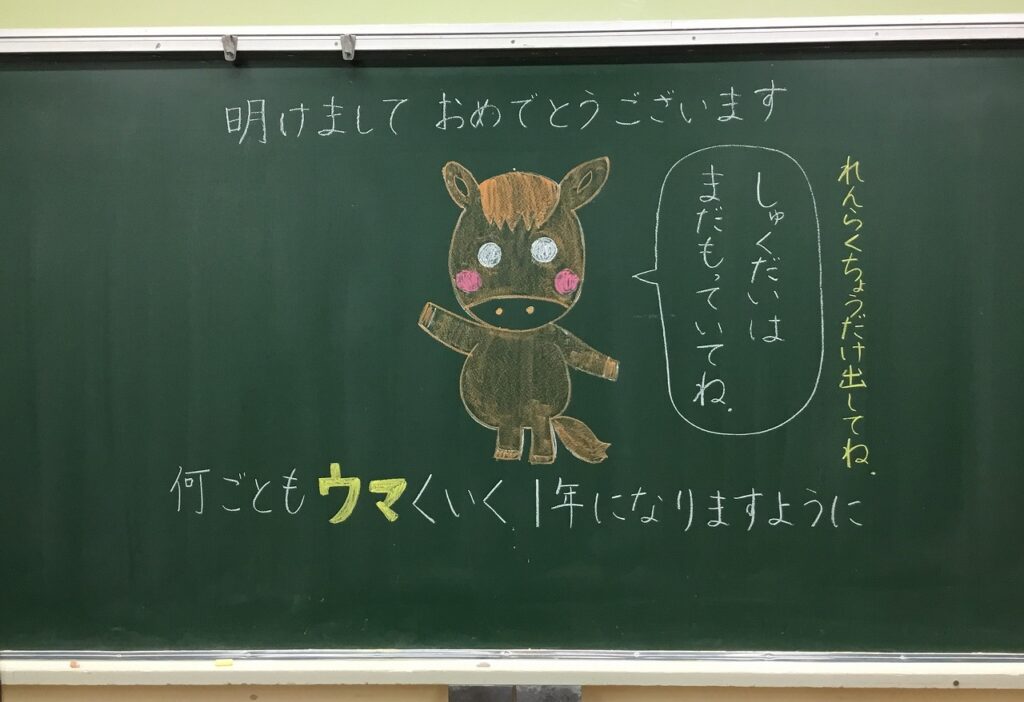 明けまして おめでとうございます
れんらくちょうだけ出してね.
しゅくだいは
まだもっていてね.
何ごともウマくいく 1年になりますように